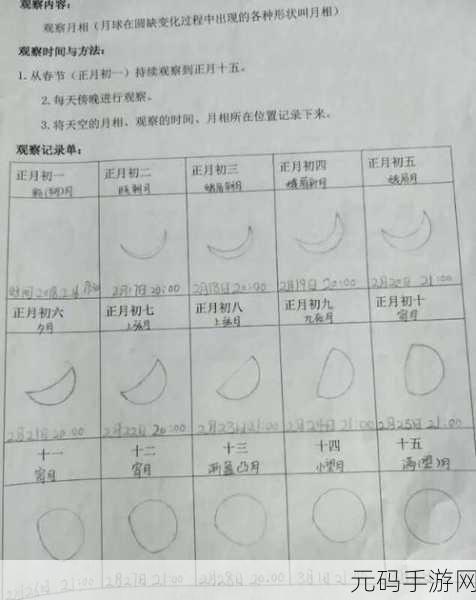 观察内容:
观察月相(月球在圆缺变化过程中出现的各种形状叫月相)
观察时间与方法:
1.从春节(正月初一)持续观察到正月十五。
2.每天傍晚进行观察。
3.将天空的月相、观察的时间、月相所在位置记录下来。
观察记录单:
正月初一 正月初二 正月初三 正月初四 正月初五
蛾眉月
2月17日 20:00 2月18日 20:00 2月19日 20:00 2月20日 21:00
正月初六 正月初七 正月初八 正月初九 正月初十
夕月 上弦月 上弦月 九夜月 宵月
2月21日 20:00 2月22日 20:00 2月23日 21:00 2月24日 21:00 2月25日 21:00
十一 十二 十三 十四 十五
宵月 宵月 渐盈凸月 小望月 满(望)月
2月26日 21:00 2月27日 21:00 2月28日 20:00 3月1日
元码手游网